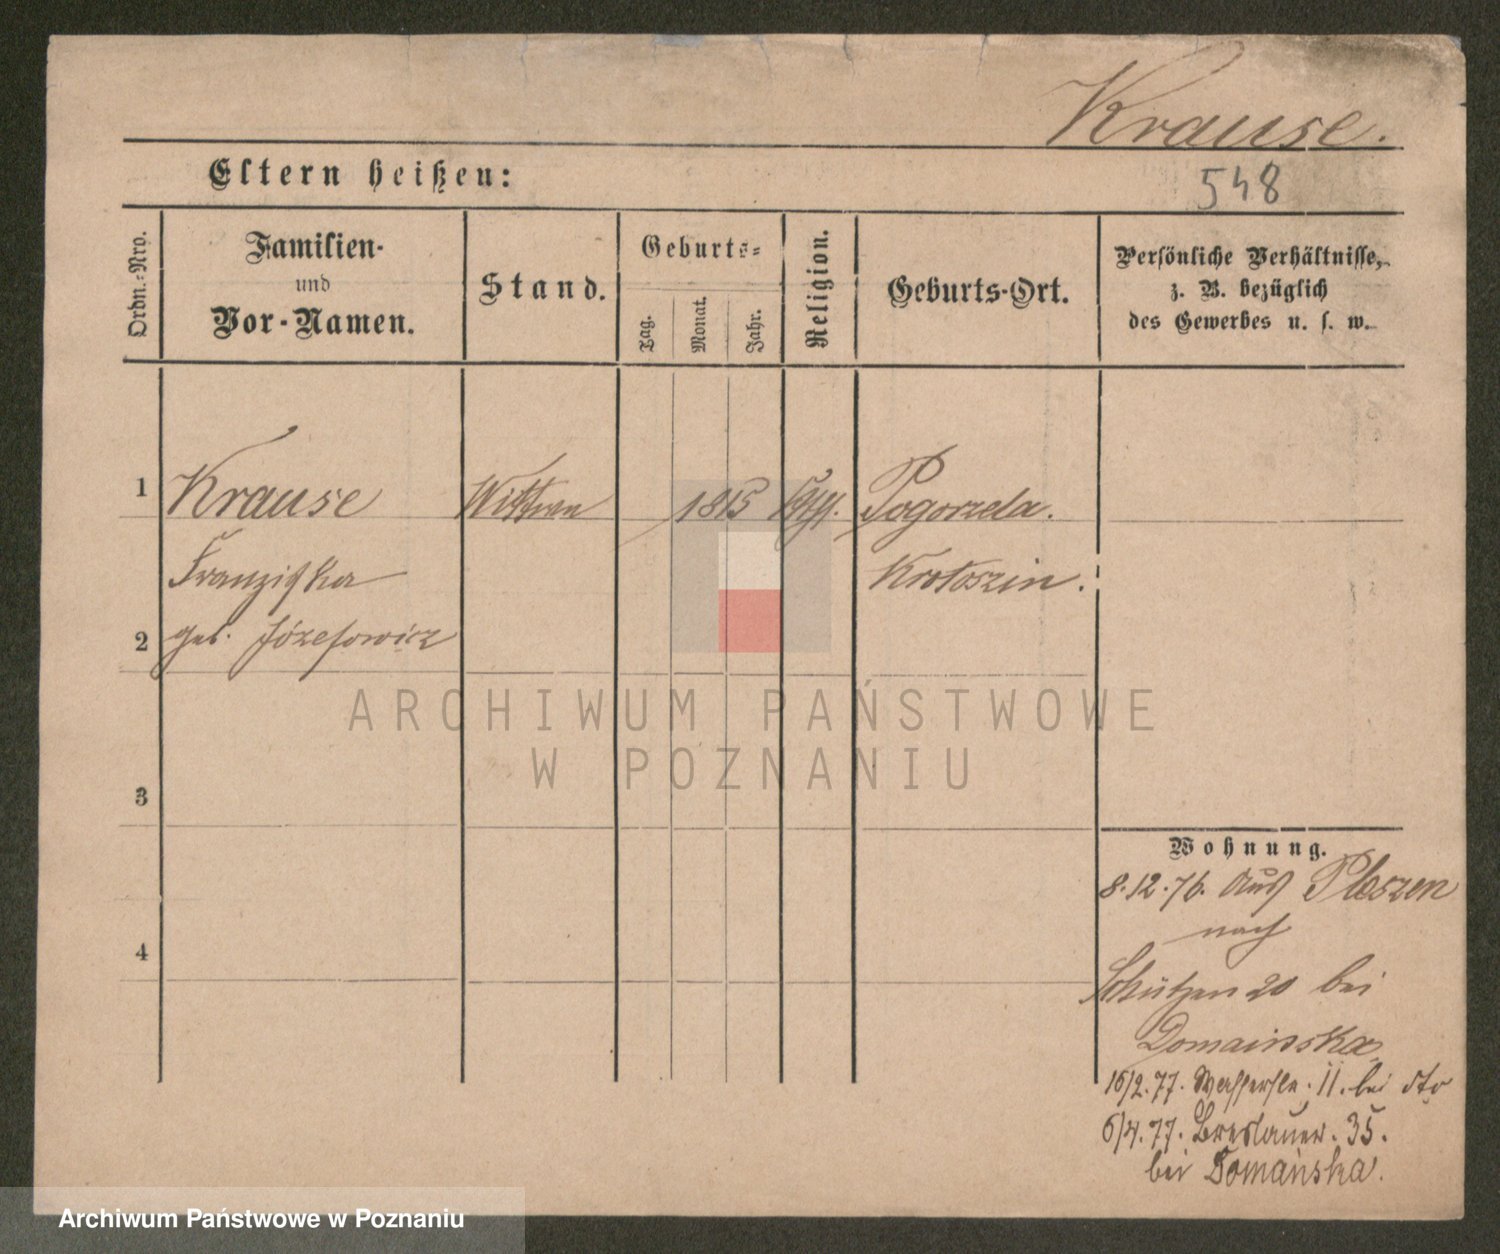 Krause.
548
Eltern heißen:
Ordn.-Nro.
Familien-
und
Vor-Namen.
Stand.
Geburts-
Tag.
Monat.
Jahr.
Religion.
Geburts-Ort.
Persönliche Verhältnisse,
z. B. bezüglich
des Gewerbes u. s. w.
1 Krause Wittwe 1815 kath. Pogorzela.
Franziska Krotoszin.
2 geb. Józefowicz
3
4
Wohnung.
8.12.76. Aus Pleszen
nach
Schützen 20 bei
Domainska
16/2.77. Wasserstr. 11. bei dto
6/4.77. Breslauer. 35.
bei Domańska.
ARCHIWUM PAŃSTWOWE
W POZNANIU
Archiwum Państwowe w Poznaniu